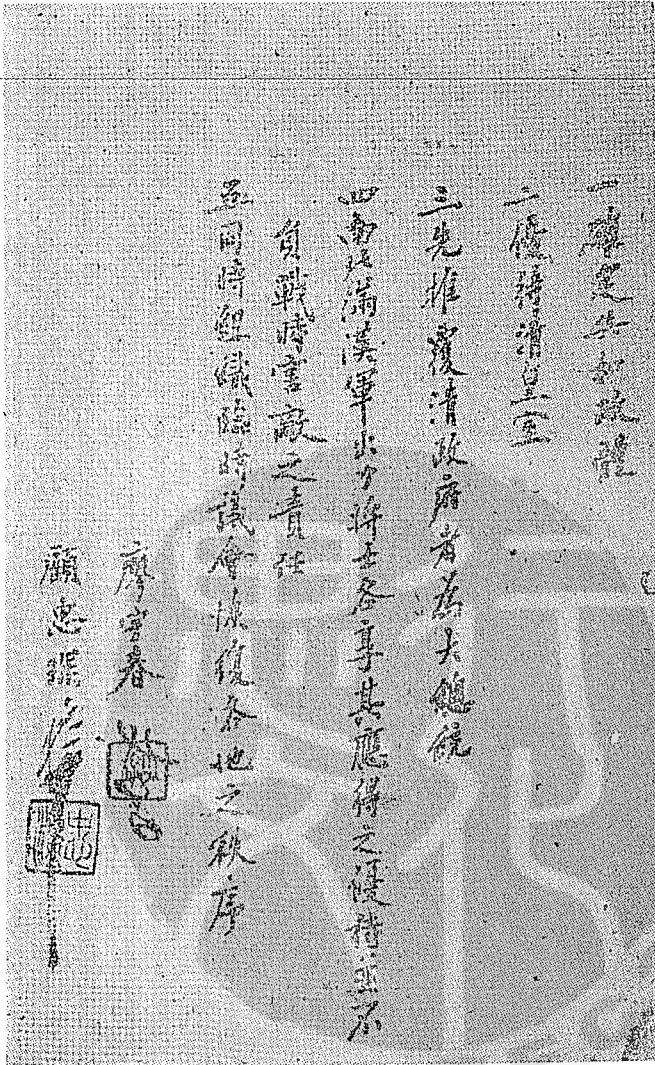 一確定共和政體
二優待清皇室
三先推覆清政府者為大總統
四南北滿漢軍出力將士各享其應得之優待並不
負戰時害敵之責任
五同時組織臨時議會恢復各地之秩序
廖宇春
顧忠琛